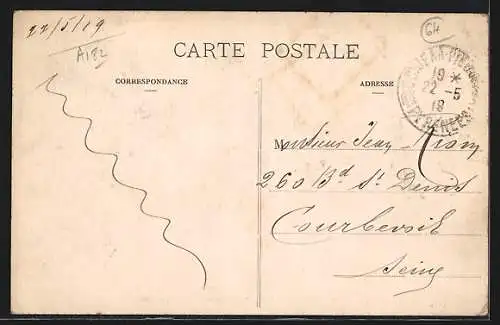 22/5/19
A182
64
CARTE POSTALE
CORRESPONDANCE
ADRESSE
19 *
22 -5
18
PYRENEES
Monsieur Jean
260 Bd St Denis
Courbevoie
Seine